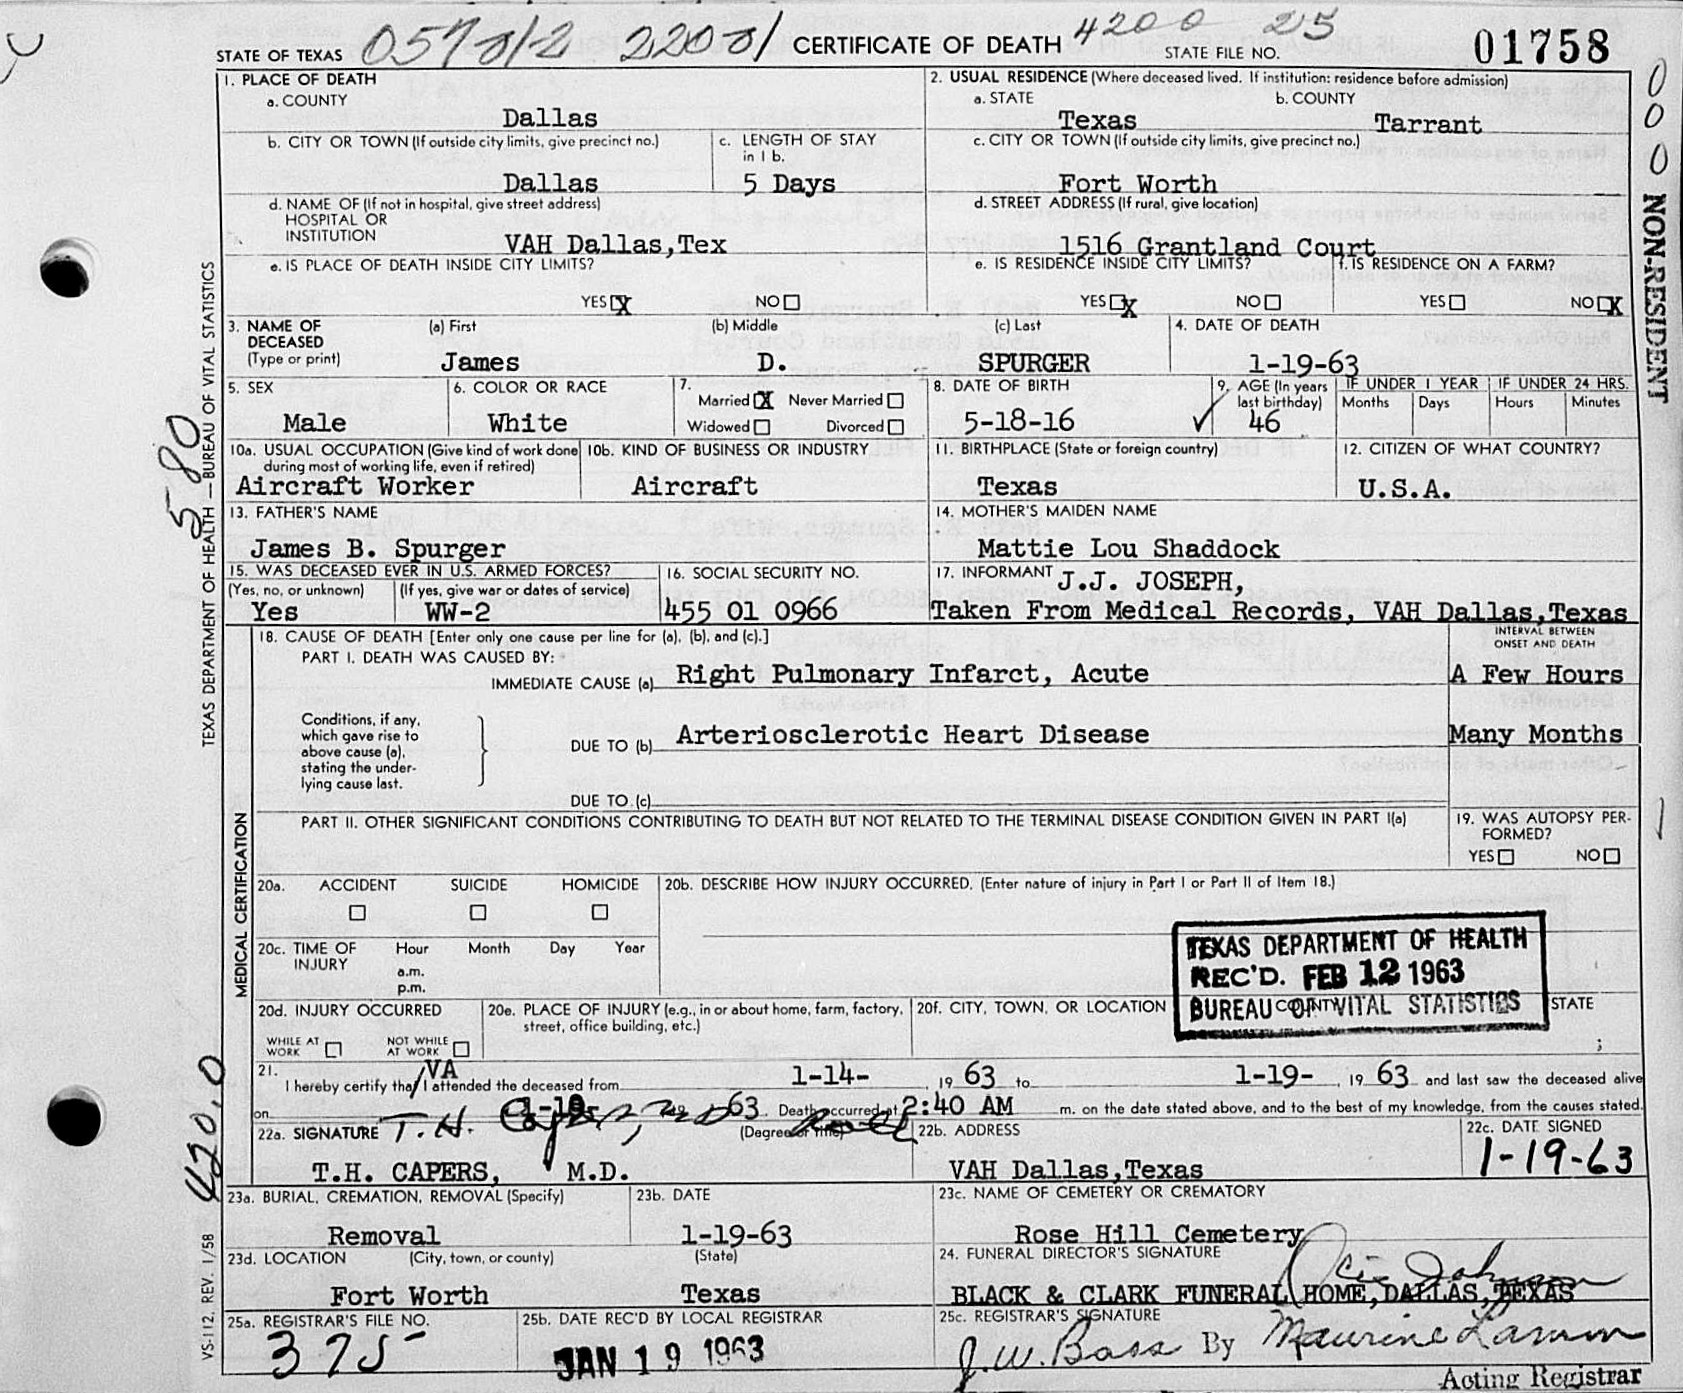 STATE OF TEXAS 057012 22001 CERTIFICATE OF DEATH 4200 25 STATE FILE NO. 01758
1. PLACE OF DEATH
a. COUNTY
Dallas
2. USUAL RESIDENCE (Where deceased lived. If institution: residence before admission)
a. STATE b. COUNTY
Texas Tarrant
b. CITY OR TOWN (If outside city limits, give precinct no.) c. LENGTH OF STAY in 1 b.
Dallas 5 Days
c. CITY OR TOWN (If outside city limits, give precinct no.)
Fort Worth
d. NAME OF (If not in hospital, give street address)
HOSPITAL OR
INSTITUTION
VAH Dallas,Tex
d. STREET ADDRESS (If rural, give location)
1516 Grantland Court
e. IS PLACE OF DEATH INSIDE CITY LIMITS?
YES X NO
e. IS RESIDENCE INSIDE CITY LIMITS? f. IS RESIDENCE ON A FARM?
YES X NO YES NO X
3. NAME OF DECEASED (Type or print) (a) First (b) Middle (c) Last 4. DATE OF DEATH
James D. SPURGER 1-19-63
5. SEX 6. COLOR OR RACE 7. Married X Never Married Widowed Divorced
Male White
8. DATE OF BIRTH 9. AGE (In years last birthday) IF UNDER 1 YEAR IF UNDER 24 HRS.
Months Days Hours Minutes
5-18-16 ✓ 46
10a. USUAL OCCUPATION (Give kind of work done during most of working life, even if retired) 10b. KIND OF BUSINESS OR INDUSTRY 11. BIRTHPLACE (State or foreign country) 12. CITIZEN OF WHAT COUNTRY?
Aircraft Worker Aircraft Texas U.S.A.
13. FATHER'S NAME 14. MOTHER'S MAIDEN NAME
James B. Spurger Mattie Lou Shaddock
15. WAS DECEASED EVER IN U.S. ARMED FORCES? 16. SOCIAL SECURITY NO. 17. INFORMANT J.J. JOSEPH,
(Yes, no, or unknown) (If yes, give war or dates of service)
Yes WW-2 455 01 0966 Taken From Medical Records, VAH Dallas,Texas
18. CAUSE OF DEATH [Enter only one cause per line for (a), (b), and (c).] INTERVAL BETWEEN ONSET AND DEATH
PART I. DEATH WAS CAUSED BY:
IMMEDIATE CAUSE (a) Right Pulmonary Infarct, Acute A Few Hours
Conditions, if any,
which gave rise to
above cause (a),
stating the under-
lying cause last.
DUE TO (b) Arteriosclerotic Heart Disease Many Months
DUE TO (c)
PART II. OTHER SIGNIFICANT CONDITIONS CONTRIBUTING TO DEATH BUT NOT RELATED TO THE TERMINAL DISEASE CONDITION GIVEN IN PART I(a)
19. WAS AUTOPSY PER-
FORMED?
YES NO
20a. ACCIDENT SUICIDE HOMICIDE 20b. DESCRIBE HOW INJURY OCCURRED. (Enter nature of injury in Part I or Part II of Item 18.)
20c. TIME OF INJURY Hour Month Day Year
a.m.
p.m.
TEXAS DEPARTMENT OF HEALTH
REC'D. FEB 12 1963
BUREAU OF VITAL STATISTICS
20d. INJURY OCCURRED 20e. PLACE OF INJURY (e.g., in or about home, farm, factory, street, office building, etc.) 20f. CITY, TOWN, OR LOCATION COUNTY STATE
WHILE AT WORK NOT WHILE AT WORK
21. VA
I hereby certify that I attended the deceased from 1-14- , 19 63 to 1-19- , 19 63 and last saw the deceased alive
on 1-19- 63. Death occurred at 2:40 AM m. on the date stated above, and to the best of my knowledge, from the causes stated.
22a. SIGNATURE T. H. Capers, MD (Degree or Title) 22b. ADDRESS 22c. DATE SIGNED
T.H. CAPERS, M.D. VAH Dallas,Texas 1-19-63
23a. BURIAL, CREMATION, REMOVAL (Specify) 23b. DATE 23c. NAME OF CEMETERY OR CREMATORY
Removal 1-19-63 Rose Hill Cemetery
23d. LOCATION (City, town, or county) (State) 24. FUNERAL DIRECTOR'S SIGNATURE
Fort Worth Texas BLACK & CLARK FUNERAL HOME,DALLAS,TEXAS
25a. REGISTRAR'S FILE NO. 25b. DATE REC'D BY LOCAL REGISTRAR 25c. REGISTRAR'S SIGNATURE
375 JAN 19 1963 J.W. Bass By Maurine
Acting Registrar
TEXAS DEPARTMENT OF HEALTH — BUREAU OF VITAL STATISTICS
580
MEDICAL CERTIFICATION
420.0
VS-112, REV. 1/58
0 0 0 NON-RESIDENT